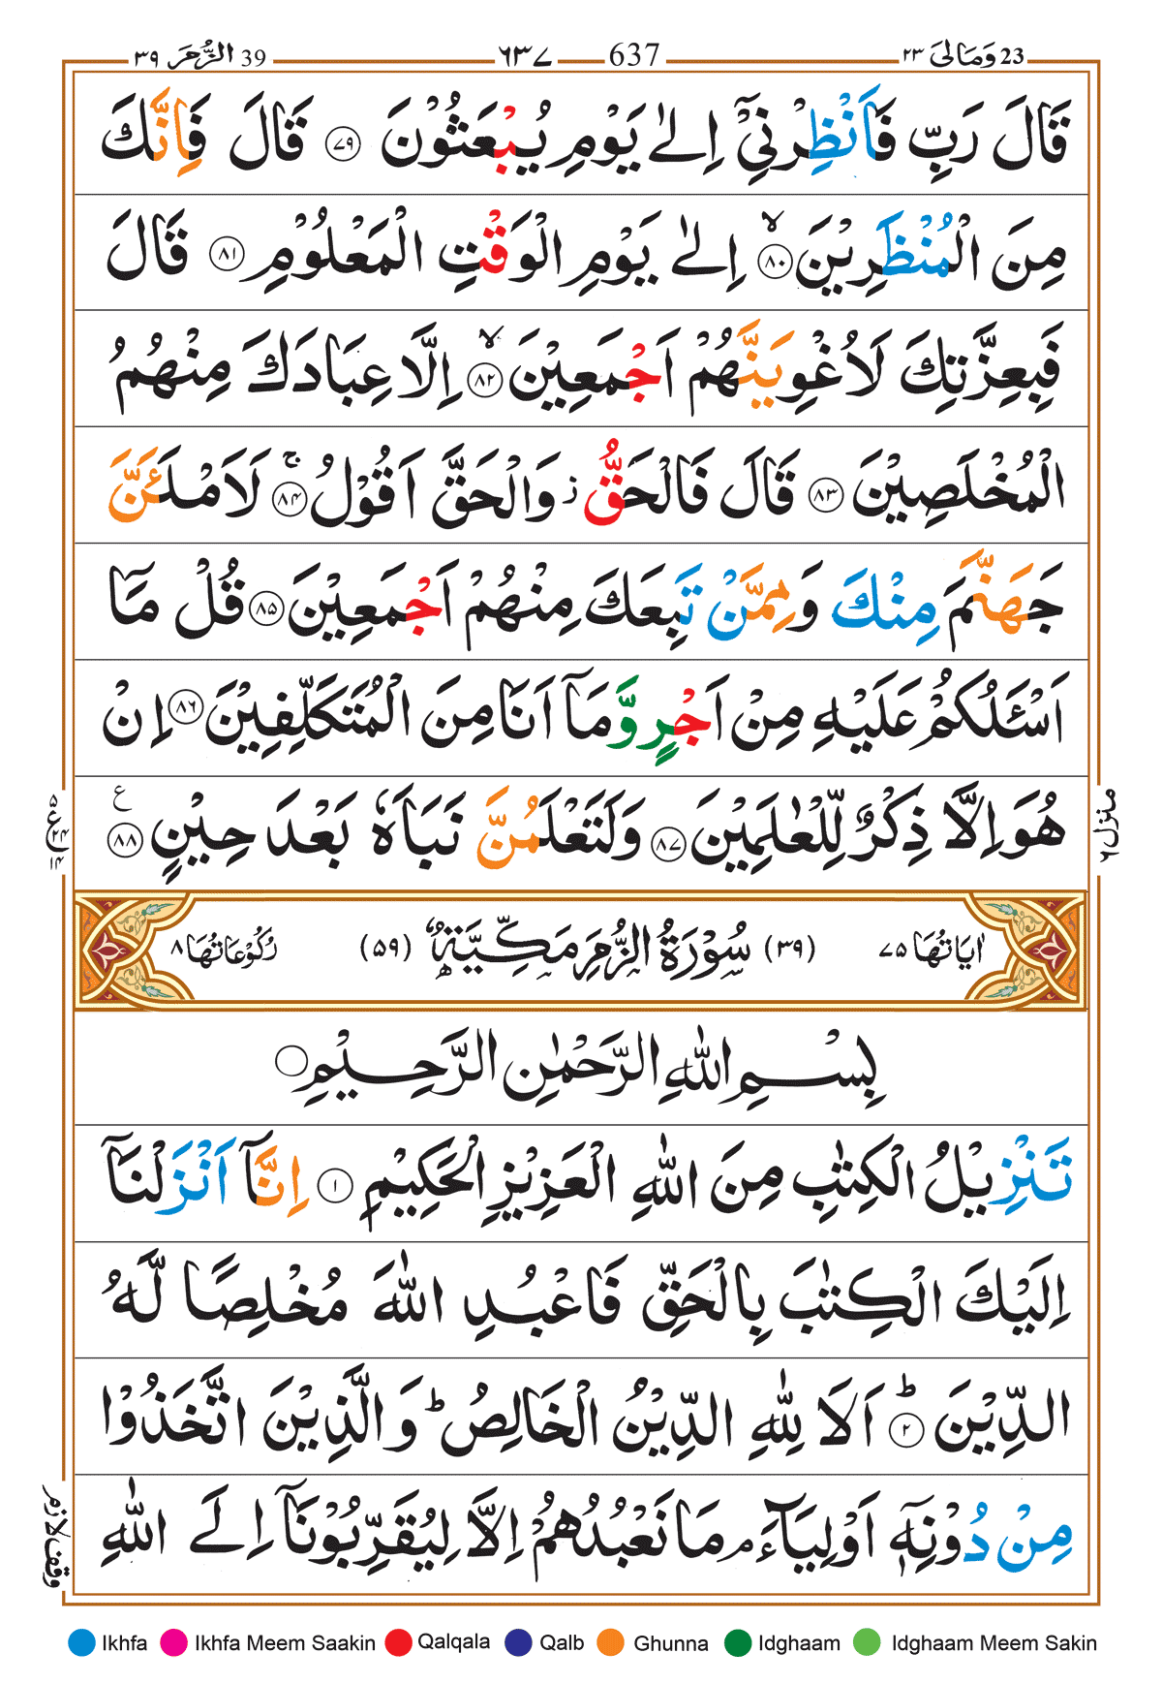 23 وَمَالِیَ ٢٣
637 ٦٣٧
39 الزُّمَر ٣٩
قَالَ رَبِّ فَاَنْظِرْنِیْۤ اِلٰی یَوْمِ یُبْعَثُوْنَ ﴿٧٩﴾ قَالَ فَاِنَّكَ
مِنَ الْمُنْظَرِیْنَ ﴿٨٠﴾ۙ اِلٰی یَوْمِ الْوَقْتِ الْمَعْلُوْمِ ﴿٨١﴾ قَالَ
فَبِعِزَّتِكَ لَاُغْوِیَنَّهُمْ اَجْمَعِیْنَ ﴿٨٢﴾ۙ اِلَّا عِبَادَكَ مِنْهُمُ
الْمُخْلَصِیْنَ ﴿٨٣﴾ قَالَ فَالْحَقُّ ز وَالْحَقَّ اَقُوْلُ ﴿٨٤﴾ۚ لَاَمْلَـَٔنَّ
جَهَنَّمَ مِنْكَ وَمِمَّنْ تَبِعَكَ مِنْهُمْ اَجْمَعِیْنَ ﴿٨٥﴾ قُلْ مَاۤ
اَسْـَٔلُكُمْ عَلَیْهِ مِنْ اَجْرٍ وَّمَاۤ اَنَا مِنَ الْمُتَكَلِّفِیْنَ ﴿٨٦﴾ اِنْ
هُوَ اِلَّا ذِكْرٌ لِّلْعٰلَمِیْنَ ﴿٨٧﴾ وَلَتَعْلَمُنَّ نَبَاَهٗ بَعْدَ حِیْنٍ ﴿٨٨﴾ ع
منزل ٦
اٰیَاتُهَا ٧٥ (٣٩) سُوْرَةُ الزُّمَرِ مَكِّیَّةٌ (٥٩) رُكُوْعَاتُهَا ٨
بِسْمِ اللّٰهِ الرَّحْمٰنِ الرَّحِیْمِ
تَنْزِیْلُ الْكِتٰبِ مِنَ اللّٰهِ الْعَزِیْزِ الْحَكِیْمِ ﴿١﴾ اِنَّاۤ اَنْزَلْنَاۤ
اِلَیْكَ الْكِتٰبَ بِالْحَقِّ فَاعْبُدِ اللّٰهَ مُخْلِصًا لَّهُ
الدِّیْنَ ﴿٢﴾ؕ اَلَا لِلّٰهِ الدِّیْنُ الْخَالِصُ ؕ وَالَّذِیْنَ اتَّخَذُوْا
مِنْ دُوْنِهٖۤ اَوْلِیَآءَ م مَا نَعْبُدُهُمْ اِلَّا لِیُقَرِّبُوْنَاۤ اِلَی اللّٰهِ
وقف لازم
Ikhfa Ikhfa Meem Saakin Qalqala Qalb Ghunna Idghaam Idghaam Meem Sakin